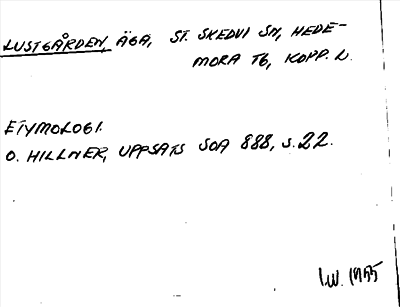 LUSTGÅRDEN, ÄGA, ST. SKEDVI SN, HEDE-
MORA TG, KOPP. L.
ETYMOLOGI.
O. HILLNER, UPPSATS SOA 888, S. 22.
I.W. 1955